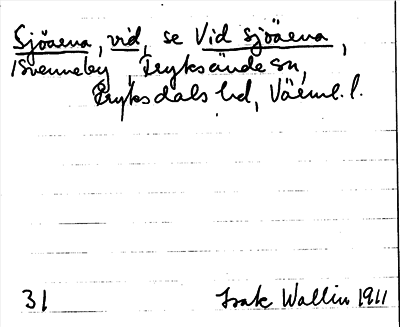 Sjöarna, vid, se Vid sjöarna,
Svenneby Fryksände sn,
Fryksdals hd, Värml. l.
31 Isak Wallin 1911